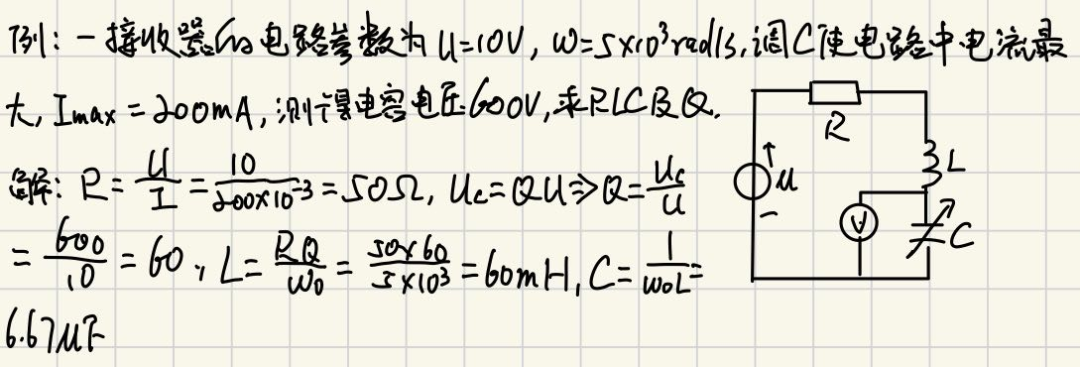 例：一接收器的电路参数为 U=10V, ω=5×10³rad/s, 调C使电路中电流最
大, Imax = 200mA, 测得电容电压600V, 求RLC及Q.
解: R = U/I = 10/200×10⁻³ = 50Ω, Uc=QU⇒Q=Uc/U
= 600/10 = 60, L= RQ/ω₀ = 50×60/5×10³ = 60mH, C= 1/ω₀L =
6.67μF
R
L
u
V
C